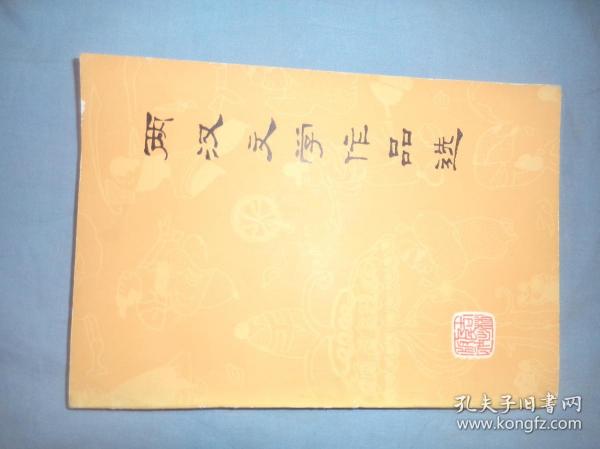 两汉文学作品选
孔夫子旧书网
www.kongfz.com